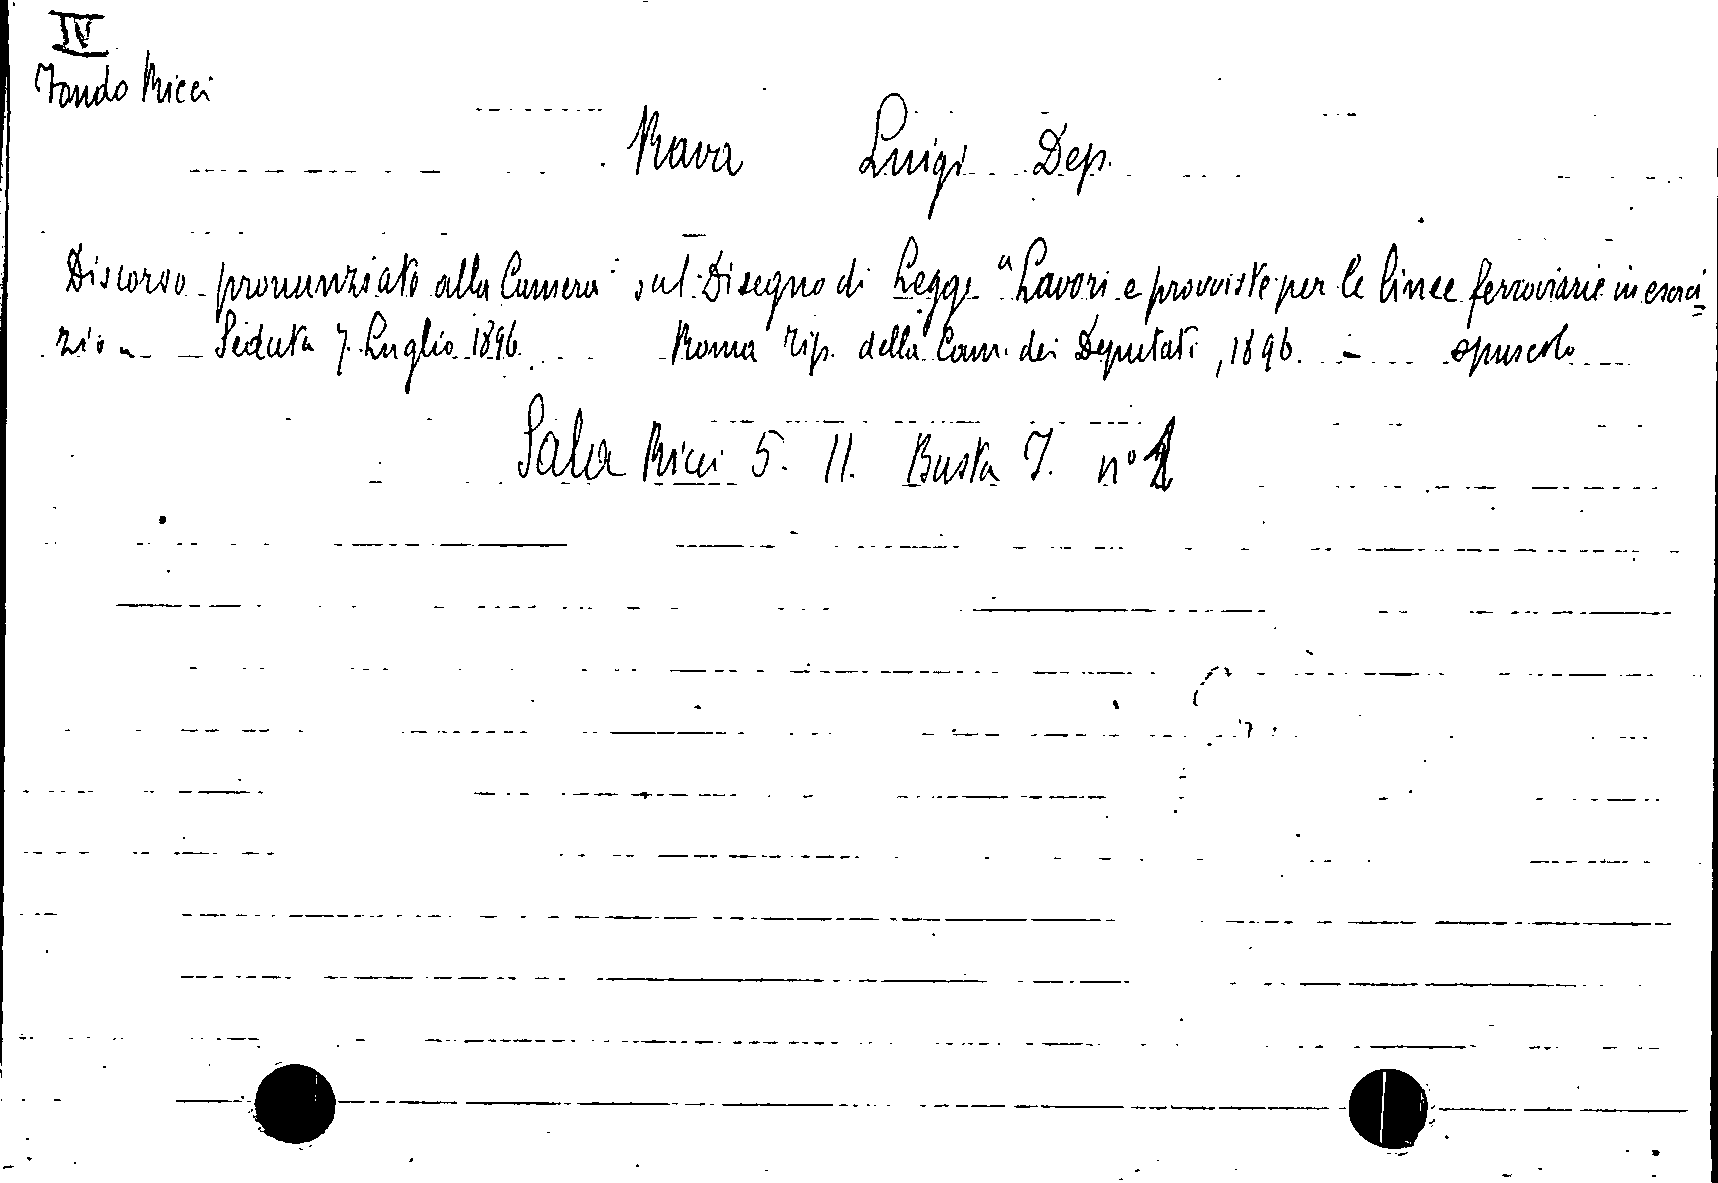 IV
Fondo Ricci
Rava Luigi Dep.
Discorso pronunziato alla Camera sul Disegno di Legge "Lavori e provviste per le linee ferroviarie in eserci=
zio" - Seduta 7. Luglio 1896. Roma Tip. della Cam. dei Deputati, 1896. - opuscolo
Sala Ricci 5. 11. Busta 7. n°